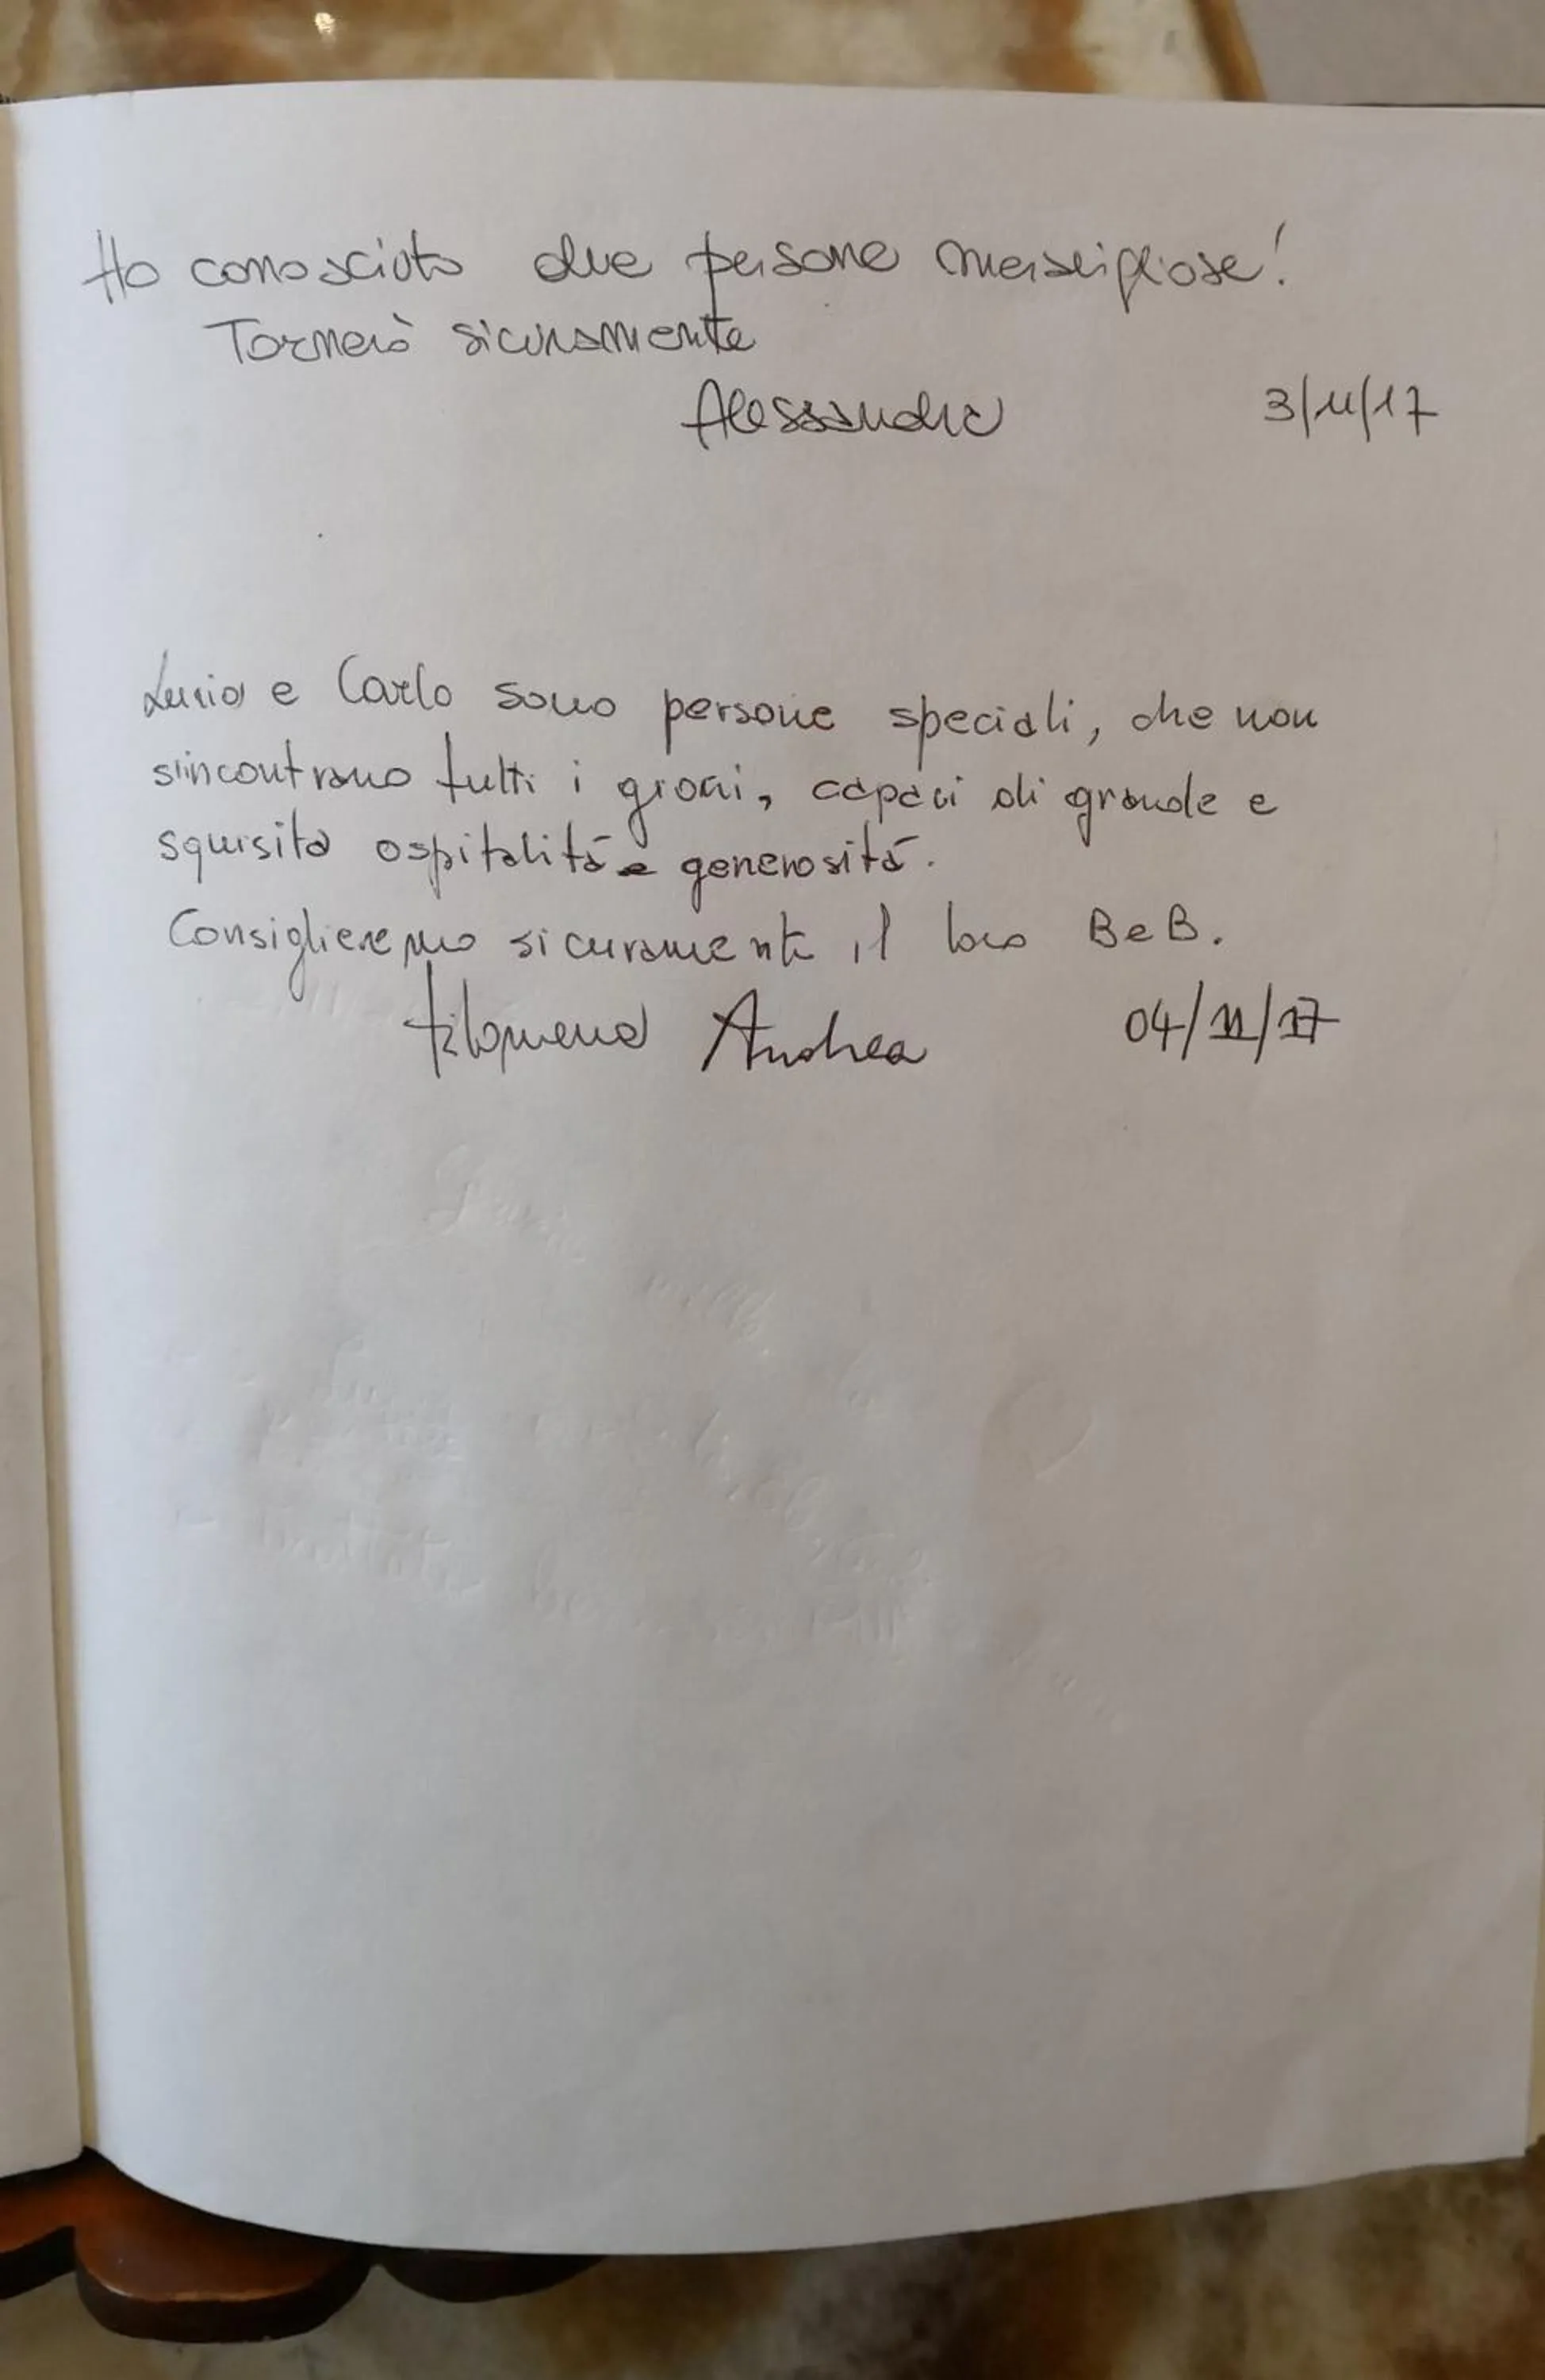 Ho conosciuto due persone meravigliose!
Tornerò sicuramente
Alessandro 3/11/17
Lucia e Carlo sono persone speciali, che non
s'incontrano tutti i giorni, capaci di grande e
squisita ospitalità e generosità.
Consiglieremo sicuramente il loro BeB.
Filomena Andrea 04/11/17